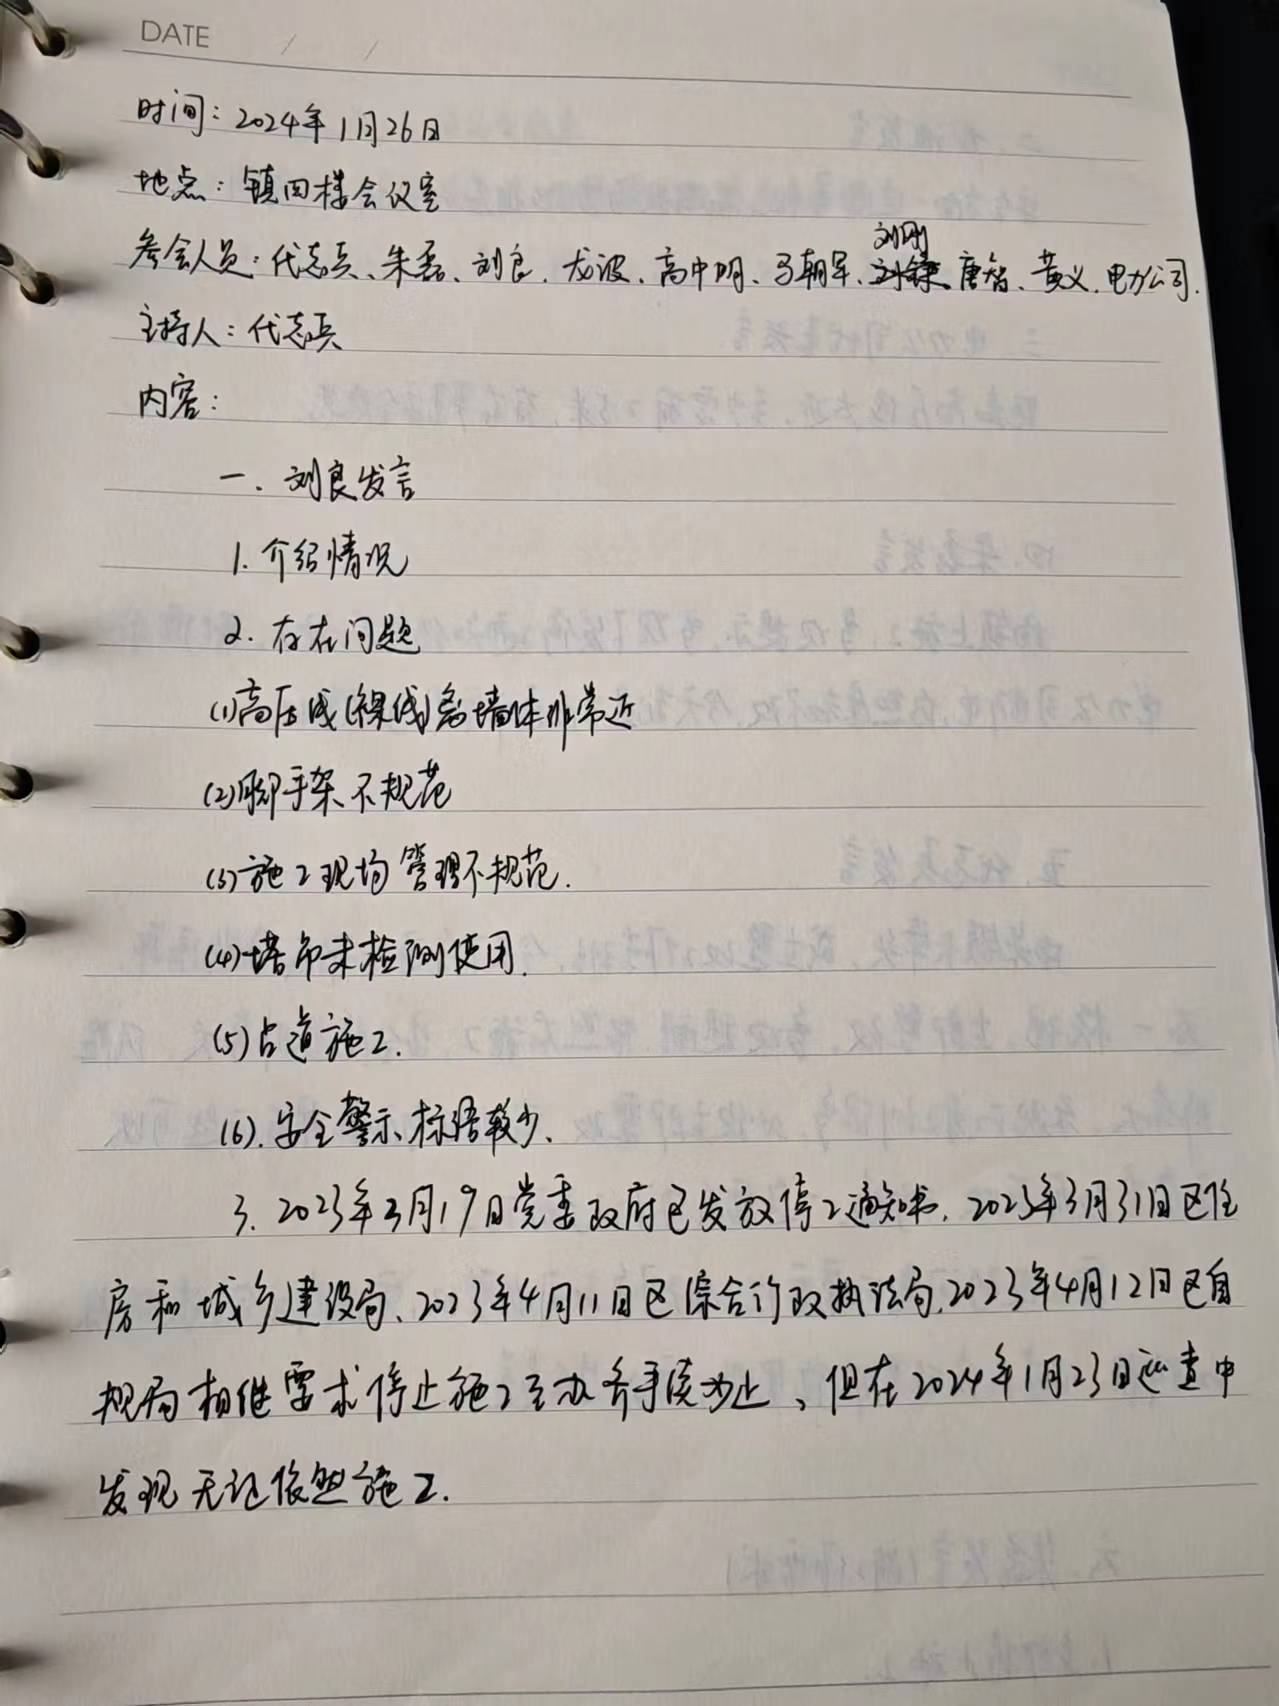 DATE / /
时间：2024年1月26日
地点：镇四楼会议室
刘刚
参会人员：代志兵、朱磊、刘良、龙波、高中明、马朝军、唐智、黄义、电力公司.
主持人：代志兵
内容：
一. 刘良发言
1. 介绍情况
2. 存在问题
(1)高压线(裸线)离墙体非常近
(2)脚手架不规范
(3)施工现场管理不规范.
(4)塔吊未检测使用.
(5)占道施工.
(6). 安全警示、标语较少.
3. 2023年3月19日党委政府已发放停工通知书, 2023年3月31日区住
房和城乡建设局、2023年4月11日区综合行政执法局, 2023年4月12日区自
规局相继要求停止施工至办齐手续为止、但在2024年1月23日巡查中
发现无证依然施工.